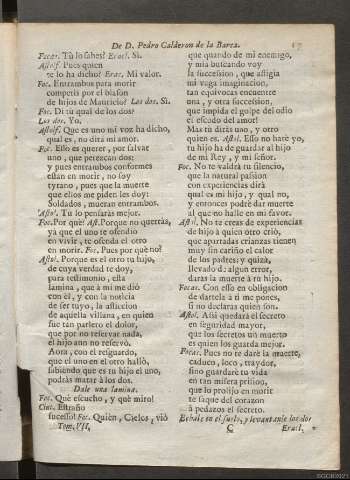 De D. Pedro Calderon de la Barca. 17
Focas. Tù lo sabes? Eracl. Si.
Astolf. Pues quien
te lo ha dicho? Erac. Mi valor.
Foc. Entrambos para morir
competis por el blason
de hijos de Mauricio? Los dos. Si.
Foc. Di tù qual de los dos?
Los dos. Yo.
Astolf. Que es uno mi voz ha dicho,
qual es, no dirà mi amor.
Foc. Esso es querer, por salvar
uno, que perezcan dos:
y pues entrambos conformes
estàn en morir, no soy
tyrano, pues que la muerte
que ellos me piden les doy:
Soldados, mueran entrambos.
Astol. Tù lo pensaràs mejor.
Foc. Por què? Ast. Porque no querràs,
yà que el uno te ofendiò
en vivir, te ofenda el otro
en morir. Foc. Pues por què no?
Astol. Porque es el otro tu hijo,
de cuya verdad te doy,
para testimonio, esta
lamina, que à mi me diò
con èl, y con la noticia
de ser tuyo, la afliccion
de aquella villana, en quien
fue tan parlero el dolor,
que por no reservar nada,
el hijo aun no reservò.
Aora, con el resguardo,
que el uno en el otro hallò,
sabiendo que es tu hijo el uno,
podràs matar à los dos.
Dale una lamina.
Foc. Què escucho, y què miro!
Cint. Estraño
sucesso! Foc. Quien, Cielos, viò
Tom. VII.
que quando de mi enemigo,
y mia buscando voy
la succession, que afligia
mi vaga imaginacion,
tan equivocas encuentre
una, y otra succession,
que impida el golpe del odio
el escudo del amor!
Mas tù diràs uno, y otro
quien es. Astol. Esso no harè yo,
tu hijo ha de guardar al hijo
de mi Rey, y mi señor.
Foc. No te valdrà tu silencio,
que la natural passion
con experiencias dirà
qual es mi hijo, y qual no,
y entonces podrè dar muerte
al que no halle en mi favor.
Astol. No te creas de experiencias
de hijo à quien otro criò,
que apartadas crianzas tienen
muy sin cariño el calor
de los padres: y quizà,
llevado de algun error,
daràs la muerte à tu hijo.
Focas. Con esso en obligacion
de dartela à ti me pones,
si no declaras quien son.
Astol. Assi quedarà el secreto
en seguridad mayor,
que los secretos un muerto
es quien los guarda mejor.
Focas. Pues no te darè la muerte,
caduco, loco, traydor,
sino guardarè tu vida
en tan misera prision,
que lo prolijo en morir
te saque del corazon
à pedazos el secreto.
Echale en el suelo, y levantanle los dos
C Eracl.